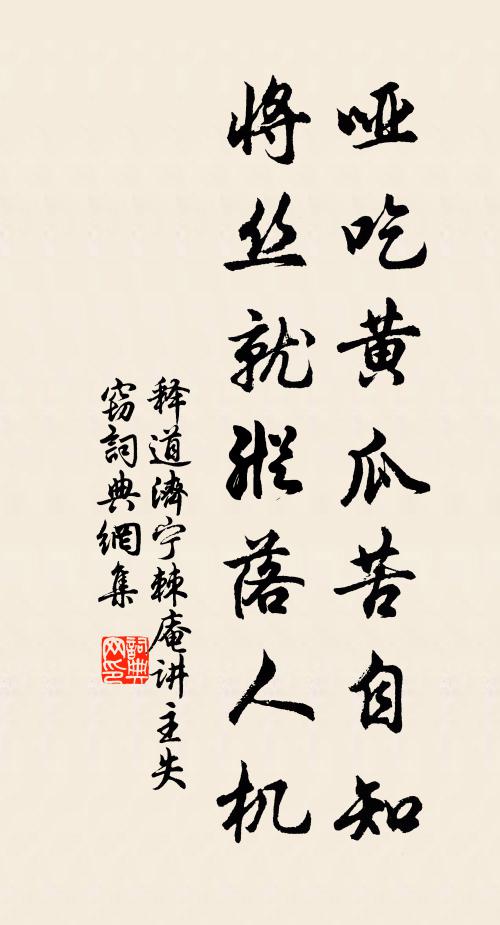 哑吃黄瓜苦自知
将丝就緵落人机
释道济宁棘庵讲主失
窃詞典網集
詞典网印